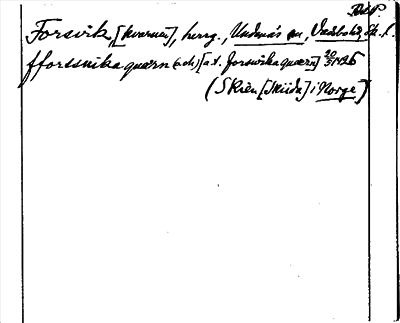 Forsvik, [kvarnen], herrg., Undenäs sn, Vadsbo hd, Sk. l.
fforssuika quærn (och) [a.t. forswika quærn] 20/5 1426
(Skien [Skiida] i Norge)